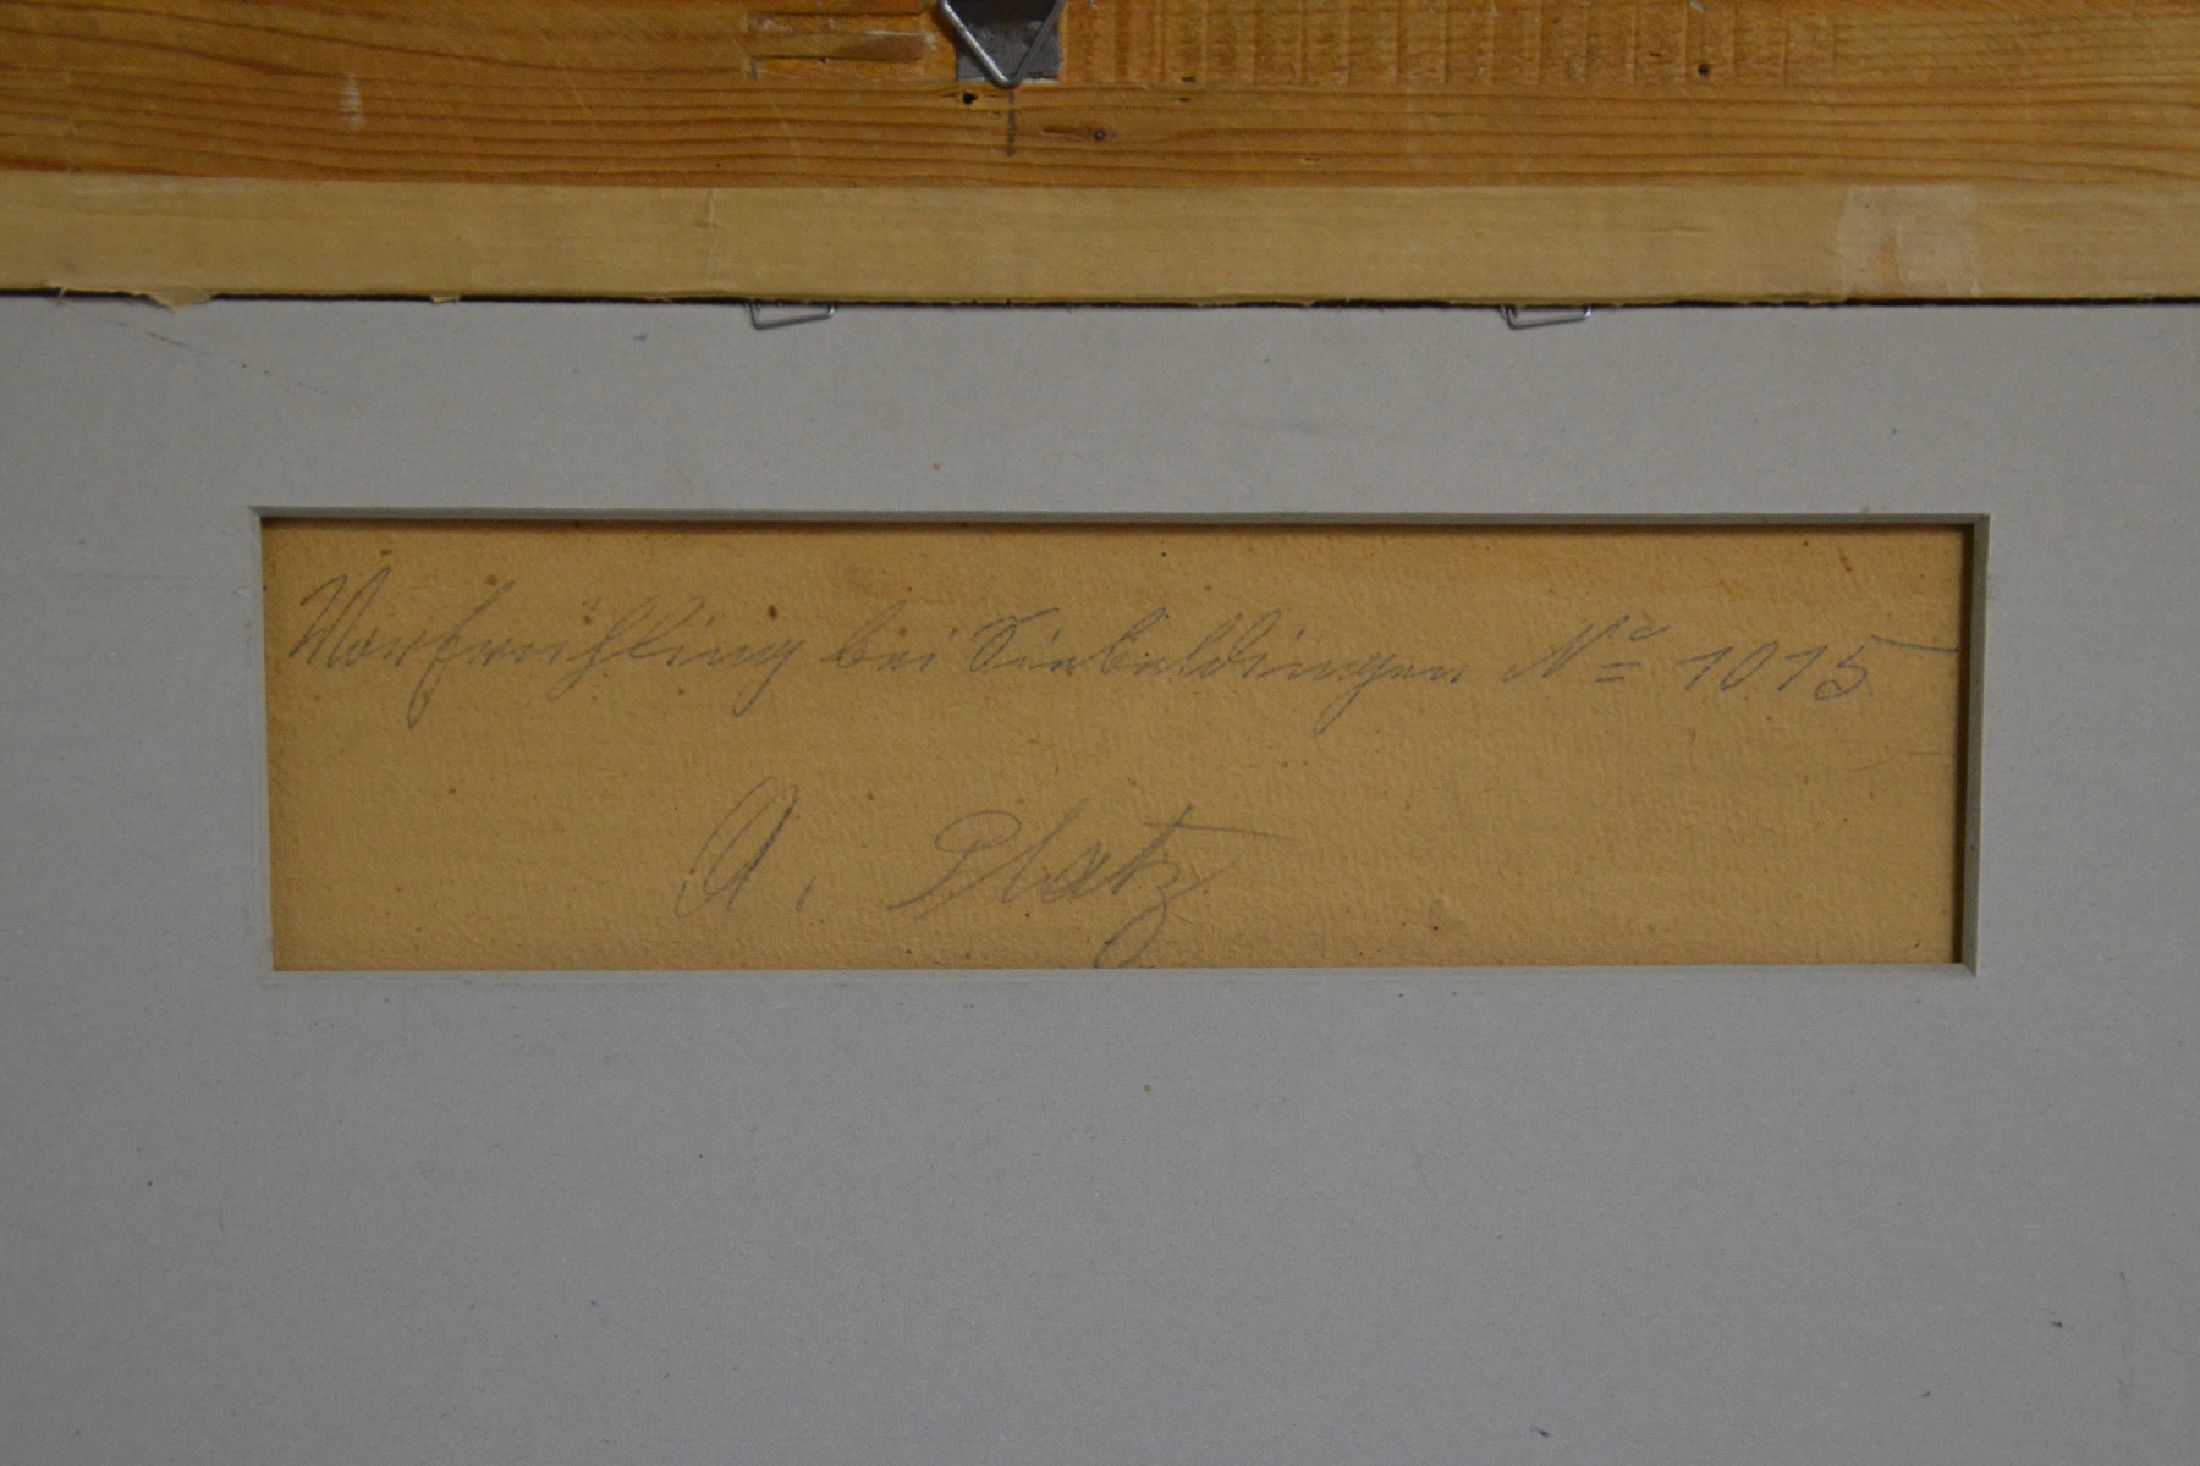 Vorfrühling bei Siebeldingen No 1015
A. Platz